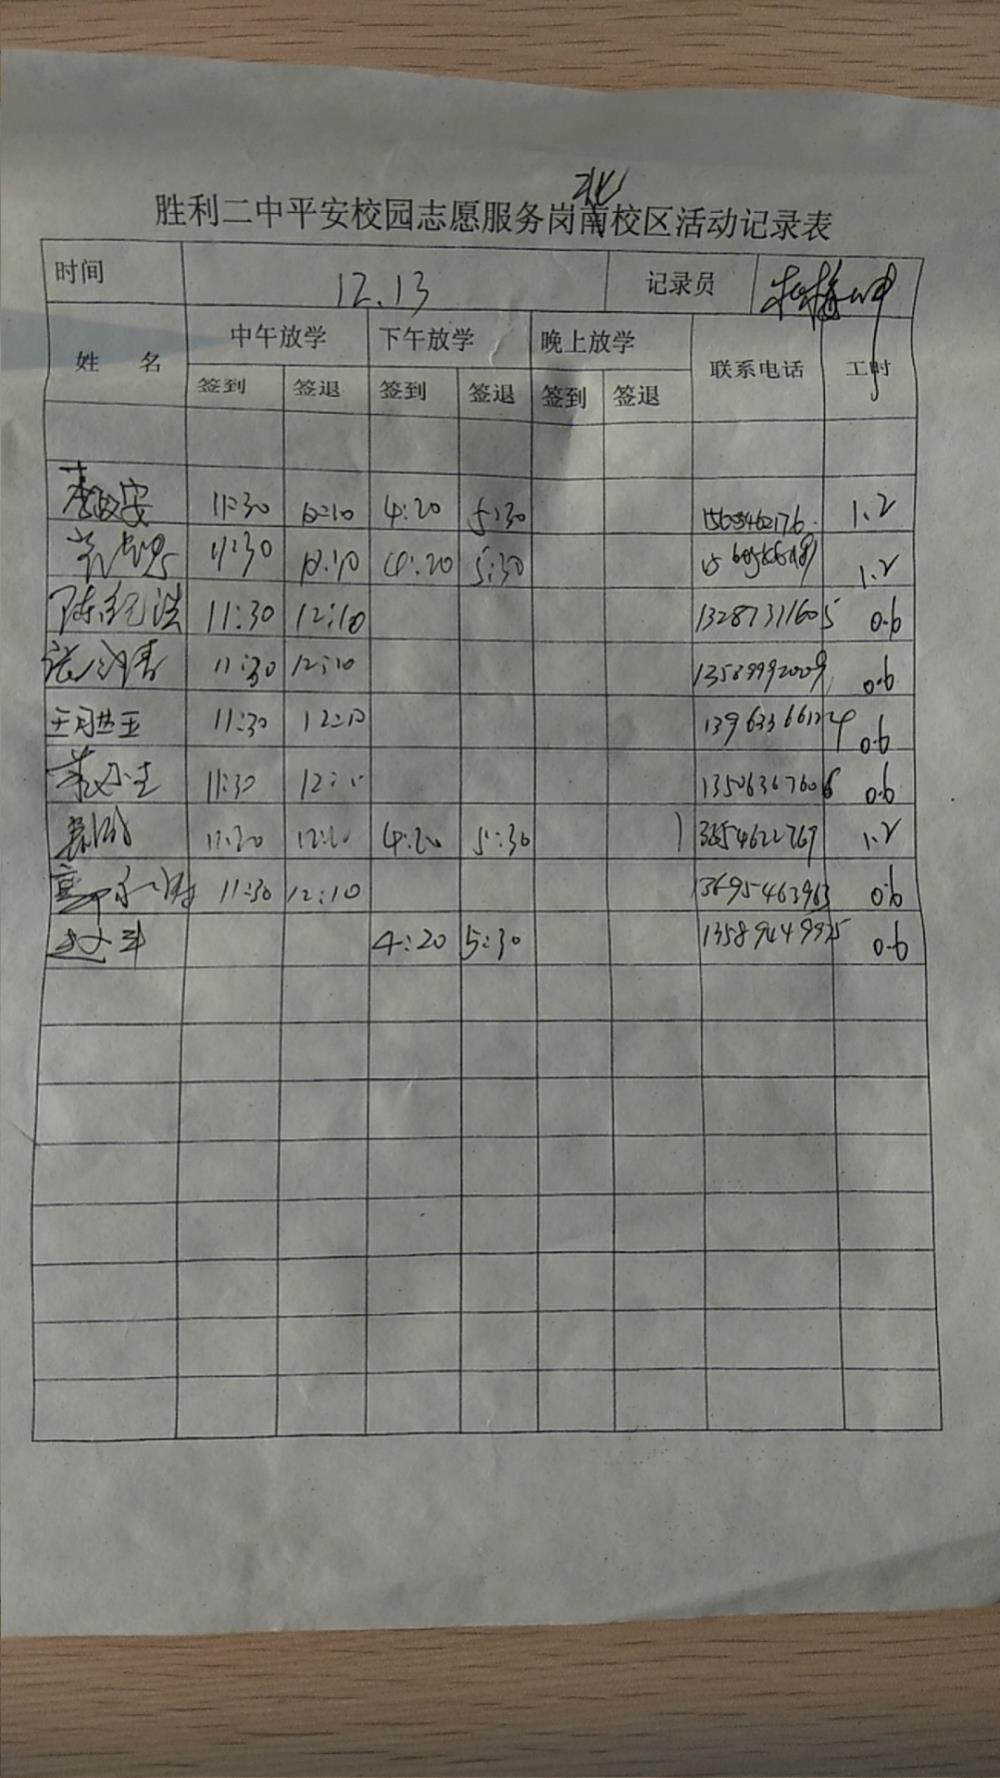 北
胜利二中平安校园志愿服务岗南校区活动记录表
时间 12.13 记录员
姓 名 中午放学 下午放学 晚上放学 联系电话 工时
签到 签退 签到 签退 签到 签退
11:30 12:10 4:20 5:30 1.2
11:30 12:10 4:20 5:30 1.2
陈纪浩 11:30 12:10 13287311605 0.6
11:30 12:10 13589992009 0.6
11:30 12:10 13963366124 0.6
11:30 12:10 13506367606 0.6
11:30 12:10 4:20 5:30 13654622769 1.2
11:30 12:10 13695463963 0.6
4:20 5:30 13589449935 0.6